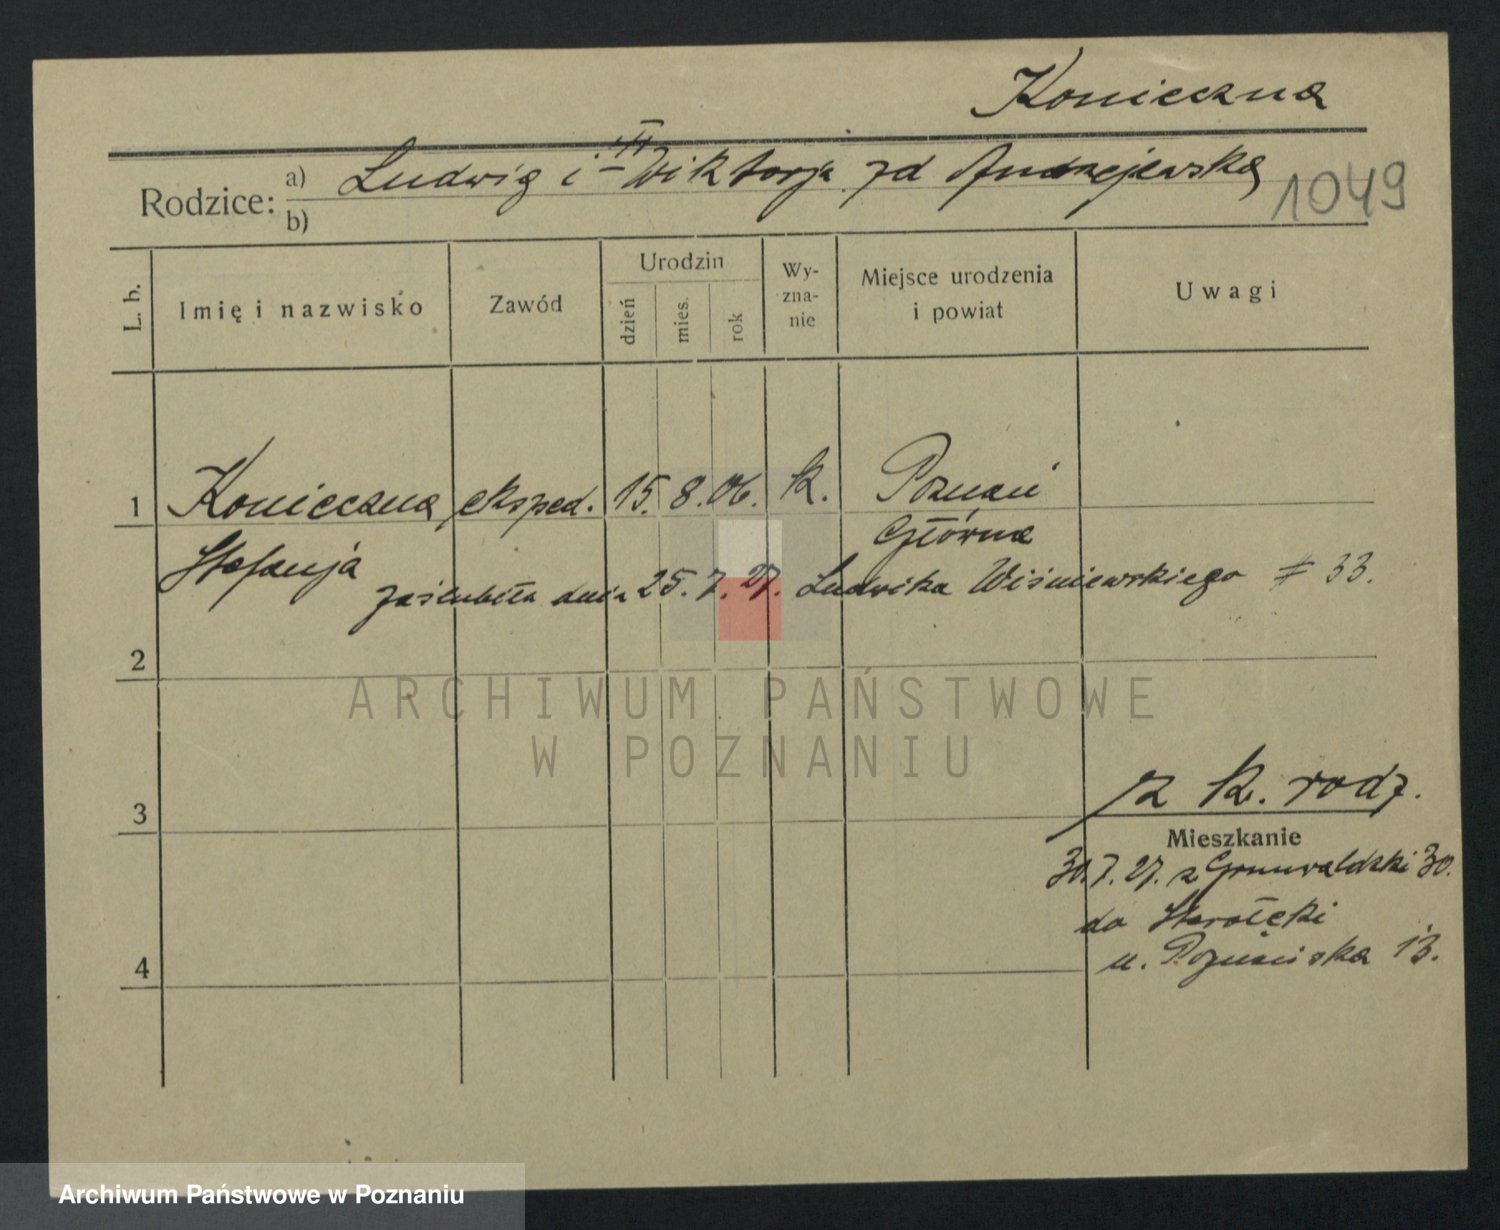 Konieczna
III
Rodzice: a) Ludwig i Wiktorja zd Andrzejewska
b)
1049
L. b.
Imię i nazwisko
Zawód
Urodzin
dzień
mies.
rok
Wy-
zna-
nie
Miejsce urodzenia
i powiat
Uwagi
1 Konieczna eksped. 15. 8. 06. k. Poznań
Główna
Stefanja
zaślubiła dnia 25. 7. 27. Ludwika Wiśniewskiego # 33.
2
ARCHIWUM PAŃSTWOWE
W POZNANIU
z k. rodz.
3
Mieszkanie
30. 7. 27. z Grunwaldzki 30.
do Starołęki
u. Poznańska 13.
4
Archiwum Państwowe w Poznaniu